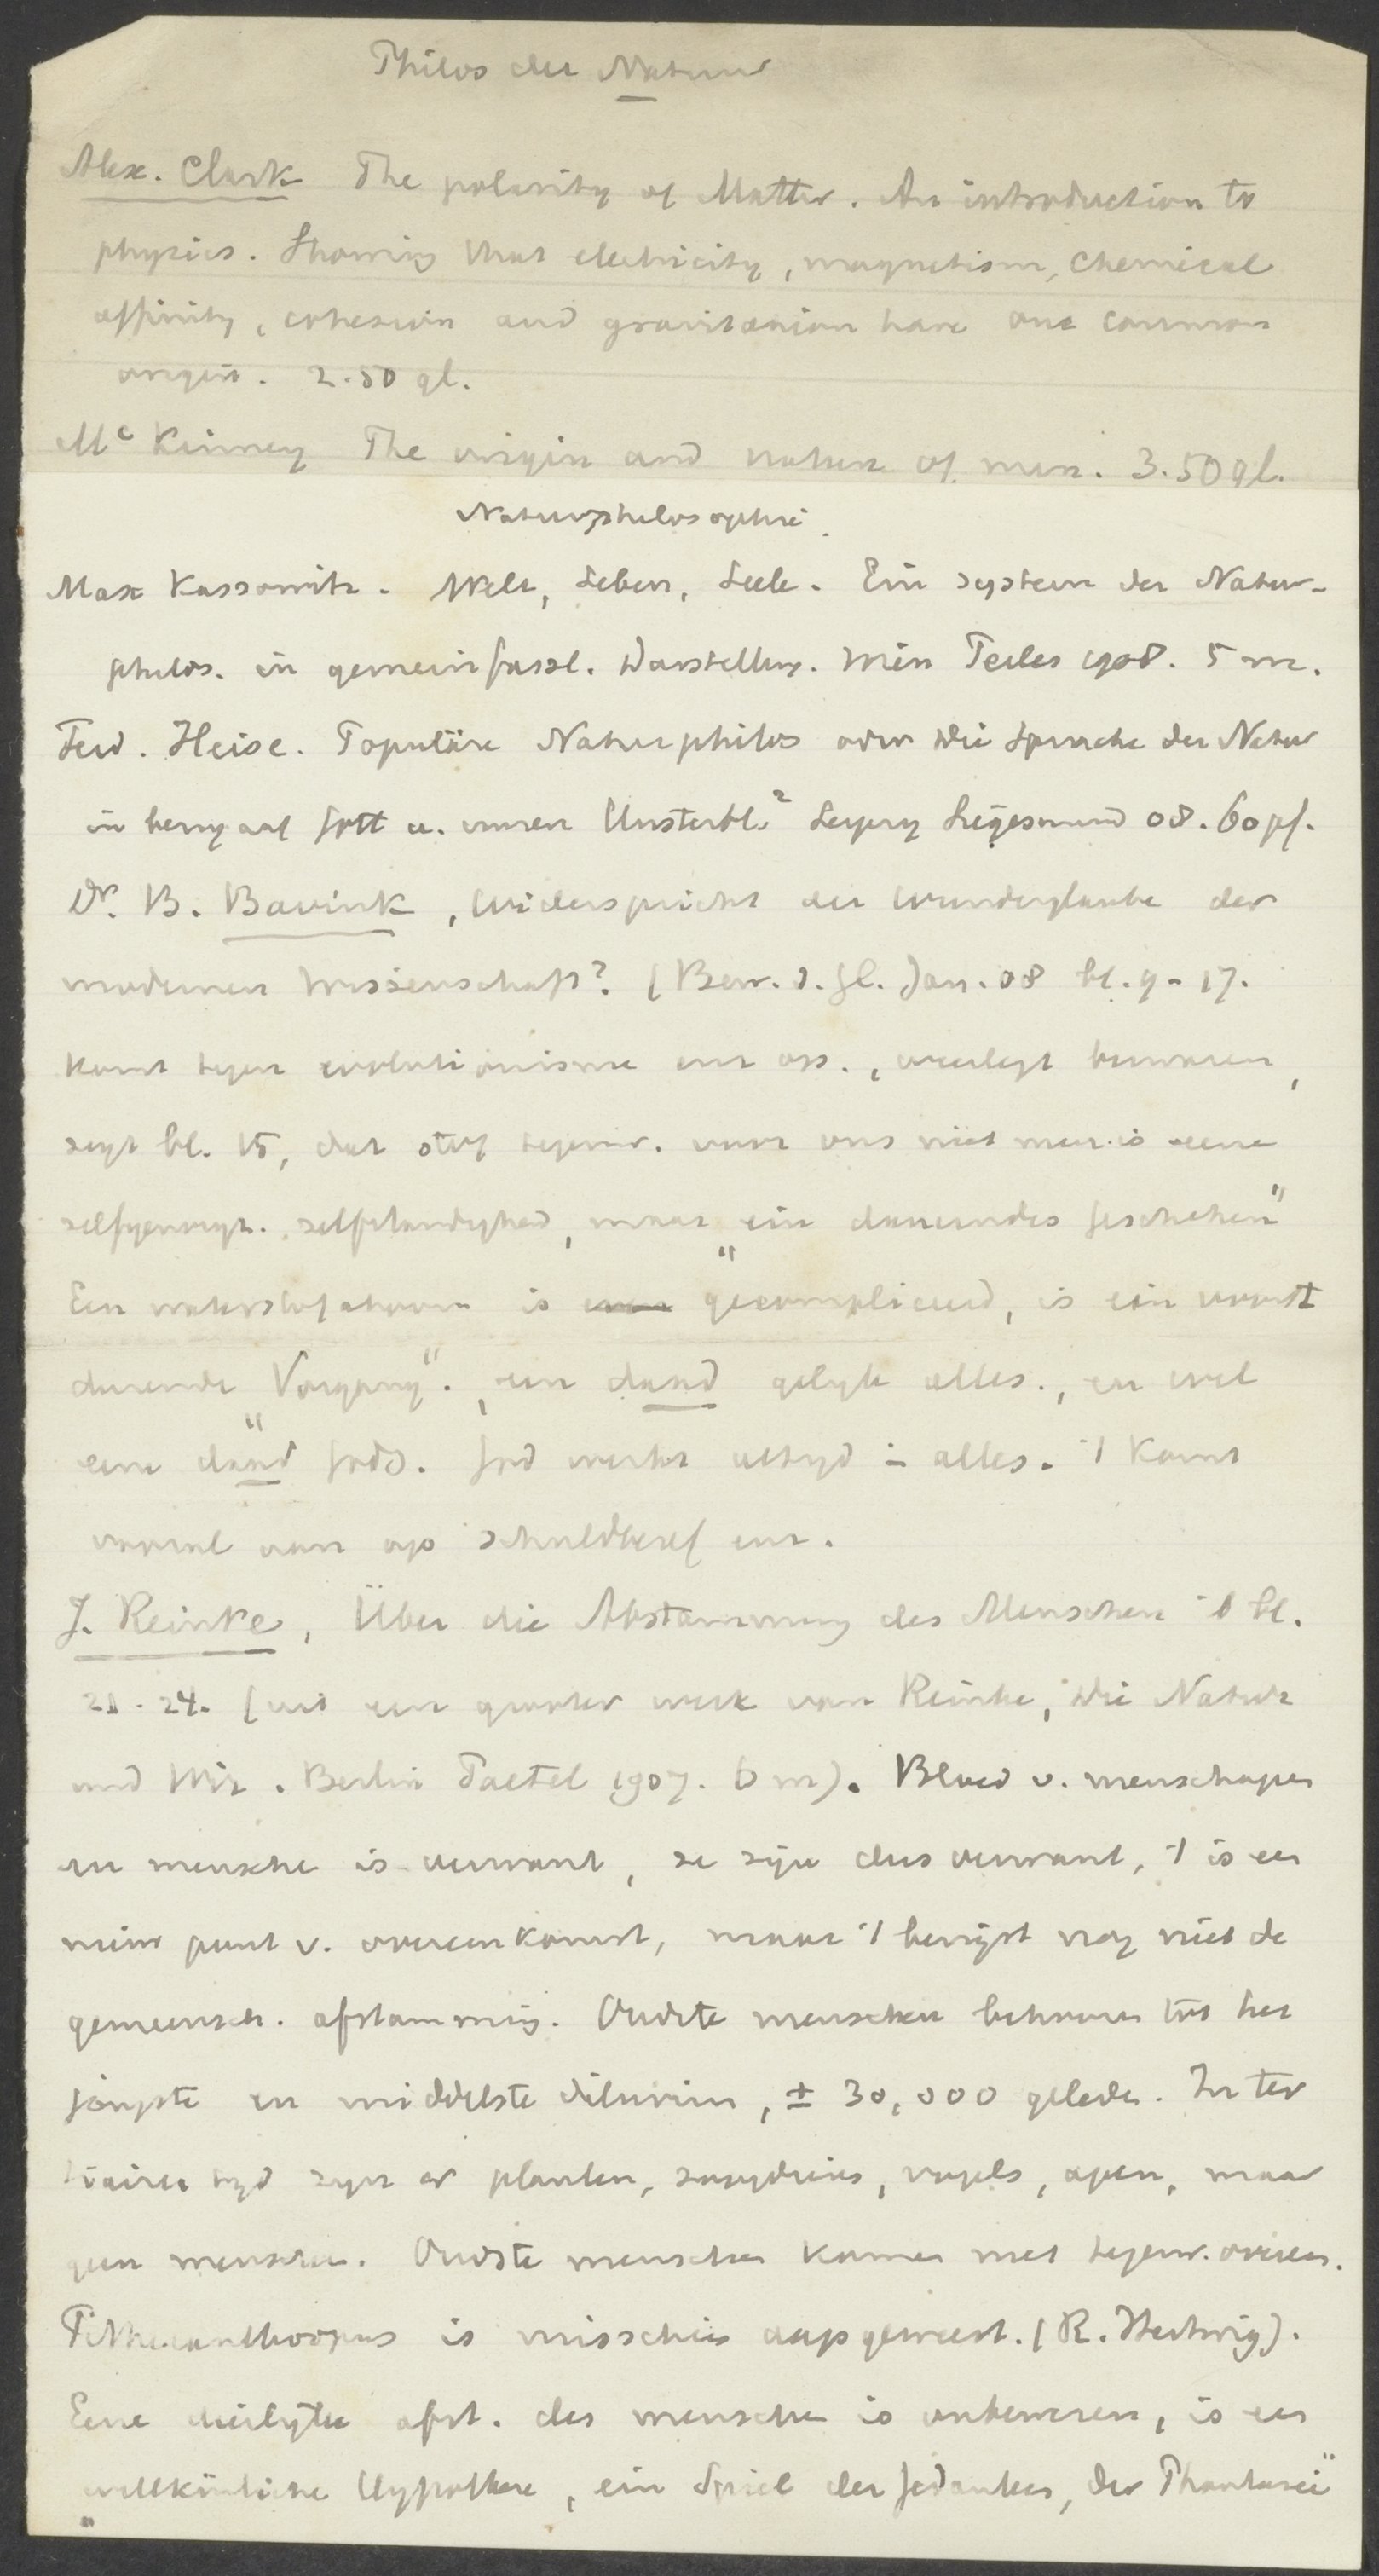 Philos der Natuur
Alex. Clark The polarity of Matter. An introduction to
physics. Showing that electricity, magnetism, chemical
affinity, cohesion and gravitation have one common
origin. 2.50 gl.
Mc Kinney The origin and nature of man. 3.50 gl.
Naturphilosophie.
Max Kassowitz. Welt, Leben, Seele. Ein system der Natur-
philos. in gemeinfassl. Darstellung. Wien Perles 1908. 5 m.
Ferd. Heise. Populäre Naturphilos oder die Sprache der Natur
in bezug auf Gott u. unsere Unsterbl.² Leipzig Siegesmund 08. 60 pf.
Dr. B. Bavink, Widerspricht der Wunderglaube der
modernen Wissenschaft? (Bew. d. Gl. Jan. 08 bl. 9-17.
komt tegen evolutionisme enz op., weerlegt bezwaren,
zegt bl. 15, dat stof tegenw. voor ons niet meer is eene
zelfgenoegz. zelfstandigheid, maar "ein dauerndes Geschehen"
Een waterstofatoom is gecompliceerd, is ein voort
durende "Vorgang". een daad gelijk alles., en wel
eene daad Gods. God werkt altijd in alles. 't Komt
vooral aan op schuldbesef enz.
J. Reinke, Über die Abstammung des Menschen ib bl.
21-24. (uit een grooter werk van Reinke, Die Natur
und Wir. Berlin Paetel 1907. 6 m). Bloed v. menschapen
en mensche is verwant, ze zijn dus verwant, 't is een
nieuw punt v. overeenkomst, maar 't bewijst nog niet de
gemeensch. afstamming. Oudste menschen behooren tot het
jongste en middelste diluvium, ± 30,000 geleden. In ter
tiaire tijd zijn er planten, zoogdieren, vogels, apen, maar
geen menschen. Oudste menschen komen met tegenw. overeen.
Pithecanthropus is misschien aap geweest. (R. Hertwig).
Eene dierlijke afst. des menschen is onbewezen, is een
"willkürliche Hypothese, ein Spiel der Gedanken, der Phantasie"